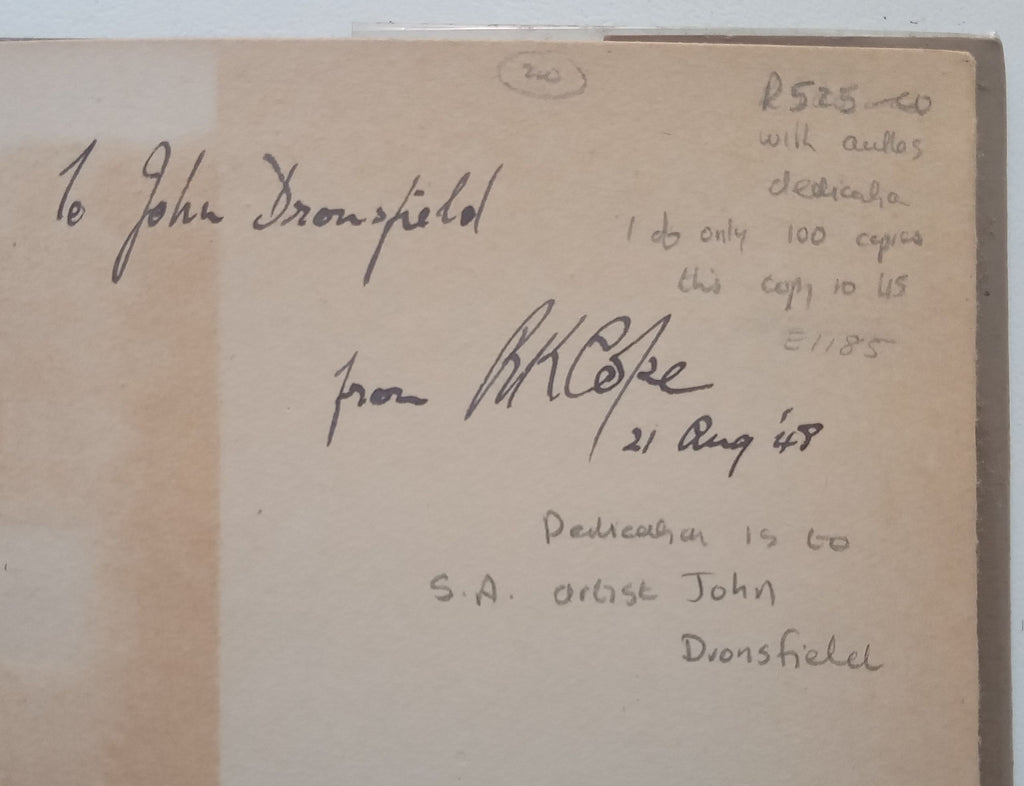 20
R525-00
with authos
dedication
1 of only 100 copies
this copy is 45
E1185
To John Dronsfield
from RK Cope
21 Aug '48
Dedication is to
S.A. artist John
Dronsfield